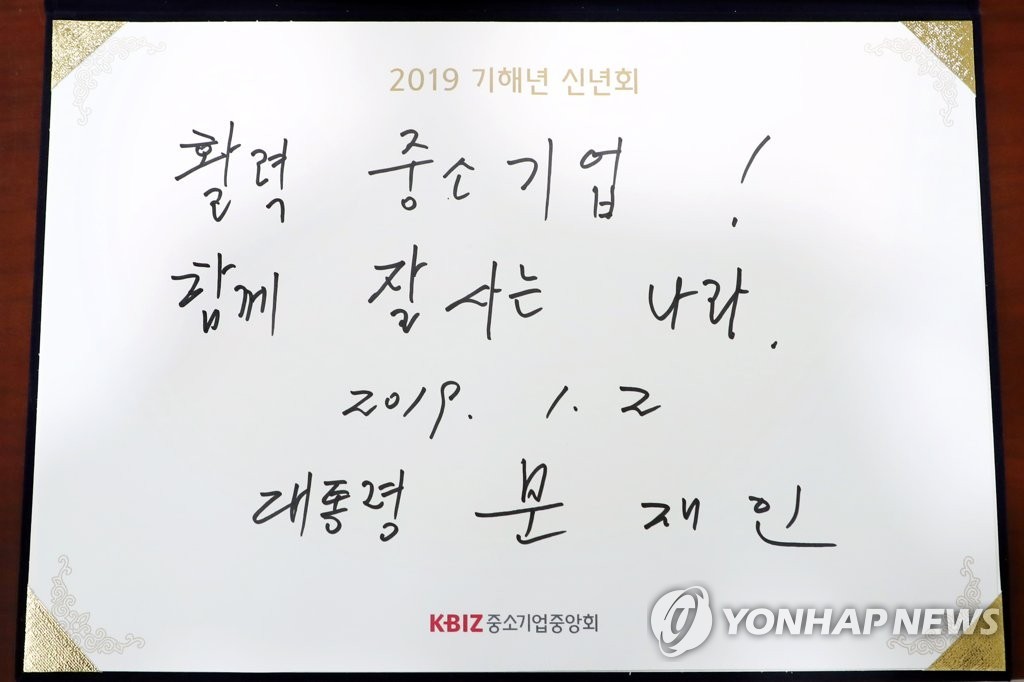 2019 기해년 신년회
활력 중소기업 !
함께 잘 사는 나라.
2019. 1. 2
대통령 문재인
K·BIZ 중소기업중앙회
YONHAP NEWS